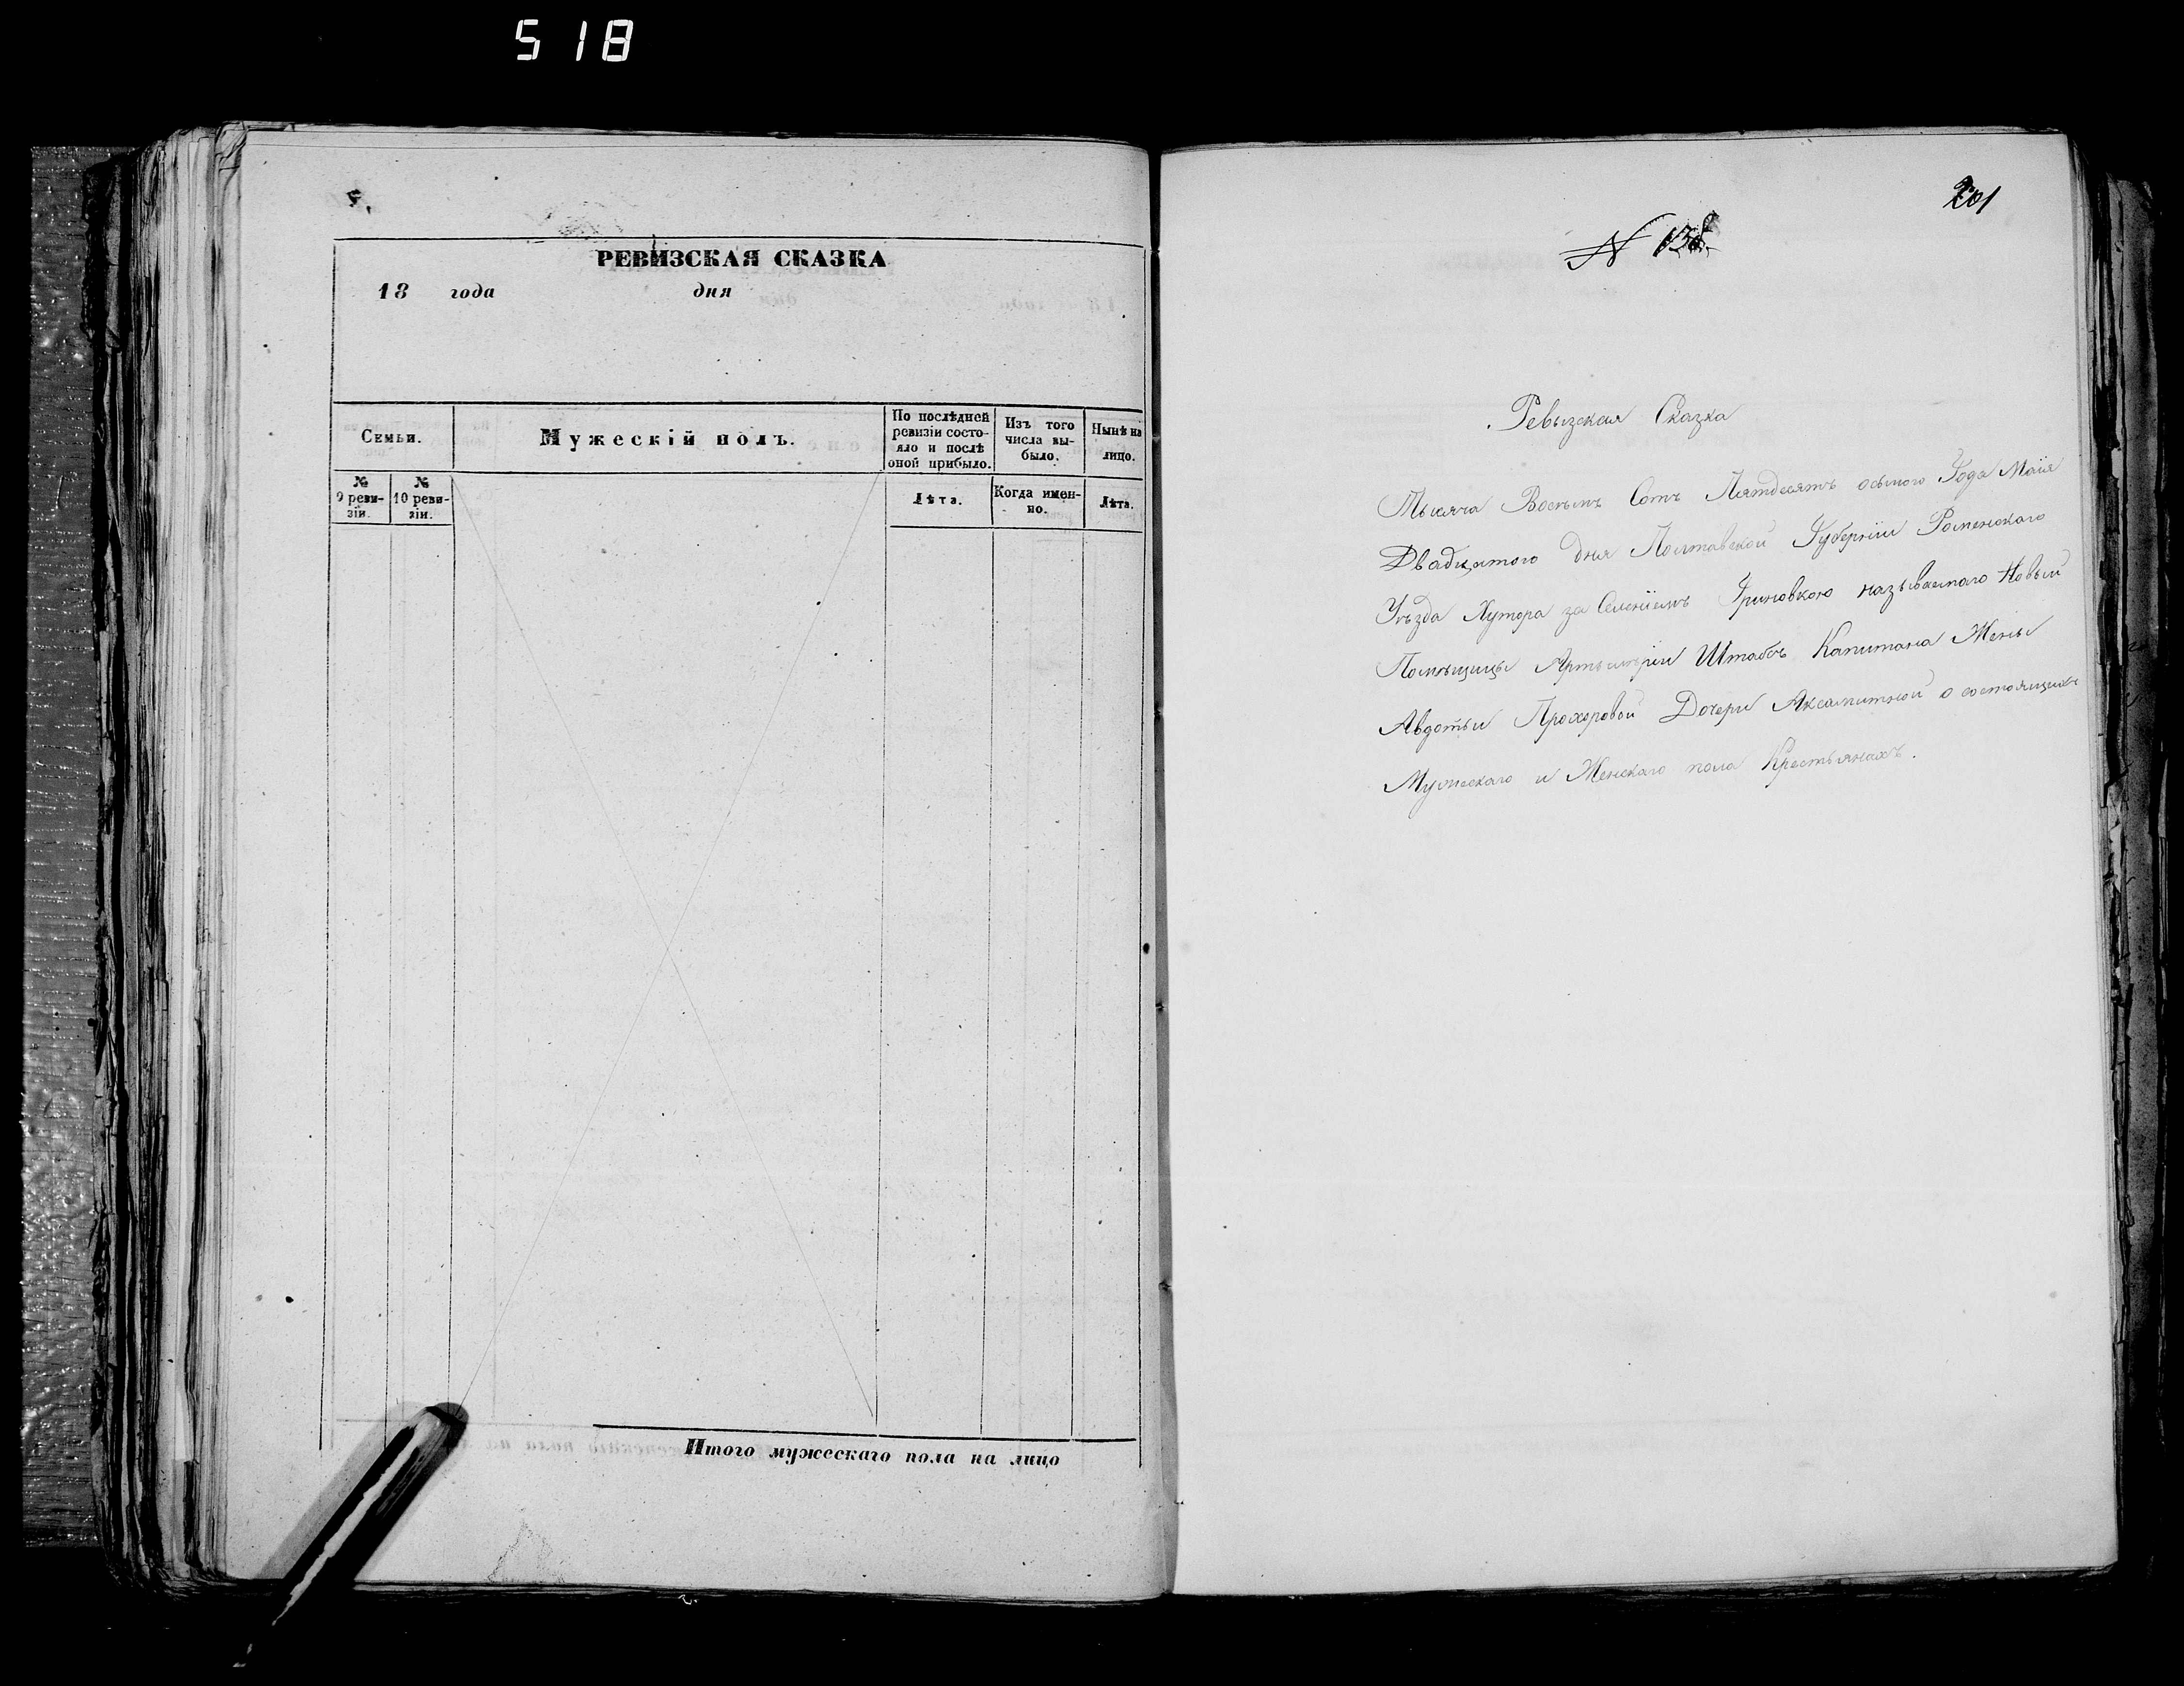 518
5.
РЕВИЗСКАЯ СКАЗКА
18 года дня
Семьи.
Мужескій полъ.
По послѣдней ревизіи состояло и послѣ оной прибыло.
Изъ того числа выбыло.
Нынѣ на лицо.
№ 9 ревизіи.
№ 10 ревизіи.
Лѣта.
Когда именно.
Лѣта.
Итого мужескаго пола на лицо
201
N 138.
Ревызская Сказка
Тысяча Восемъ Сотъ Пятдесятъ осьмого Года Маія
Двадцатого дня Полтавской Губерніи Роменского
Уѣзда Хутора за Селеніемъ называемаго Новый
Помѣщицы Штабсъ Капитана Жены
Авдотьи Прохоровой Дочери Аксамитной о состоящихъ
Мужескаго и Женскаго пола Крестьянахъ.